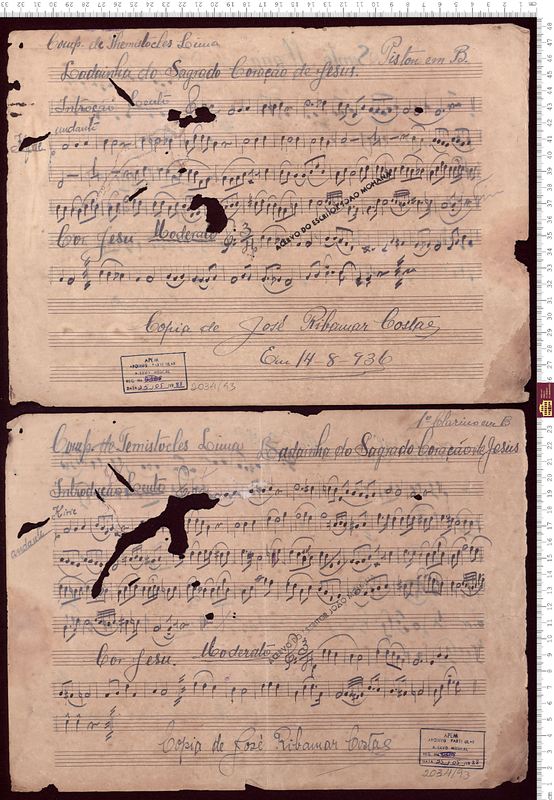 Comp. de Themistocles Lima
Piston em B.
Ladainha do Sagrado Coração de Jesus.
Introção Lento
andante
Cor Jesu Moderato
ACERVO DO ESCRITOR JOÃO MOHANA
Copia de José Ribamar Costa
Em 14-8-936
APEM
ARQUIVO PARTICULAR
ACERVO MUSICAL
REG. No.
DATA
2034/93
1º Clarino em B
Comp. de Temistocles Lima Ladainha do Sagrado Coração de Jesus
Introdução Lento
Kirie
andante
ACERVO DO ESCRITOR JOÃO MOHANA
Cor Jesu. Moderato
Copia de José Ribamar Costa
APEM
ARQUIVO PARTICULAR
ACERVO MUSICAL
REG. No.
DATA
2034/93